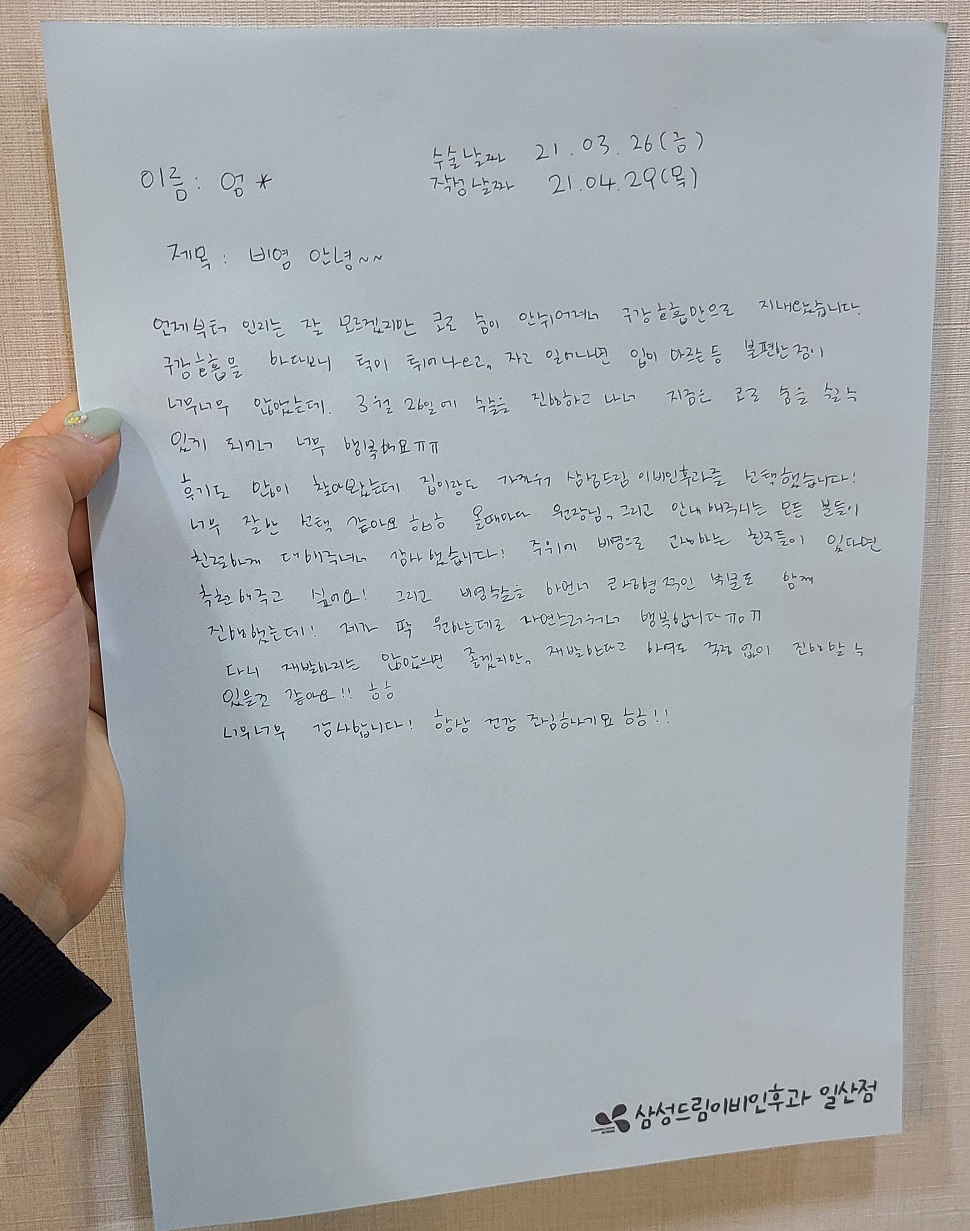 수술날짜 21.03.26(금)
이름: 엄* 작성날짜 21.04.29(목)
제목: 비염 안녕~~
언제부터 인지는 잘 모르겠지만 코로 숨이 안쉬어져서 구강호흡만으로 지내왔습니다.
구강호흡을 하다보니 턱이 튀어나오고, 자고 일어나면 입이 마르는등 불편한점이
너무너무 많았는데. 3월 26일에 수술을 진행하고 나니 지금은 코로 숨을 쉴수
있게 되어서 너무 행복해요ㅠㅠ
후기도 많이 찾아봤는데 집이랑도 가까워 삼성드림이비인후과를 선택했습니다!
너무 잘한 선택 같아요 ㅎㅎ 올때마다 원장님, 그리고 안내해주시는 모든 분들이
친절하게 대해주셔서 감사했습니다! 주위에 비염으로 고생하는 친구들이 있다면
추천해주고 싶어요! 그리고 비염수술을 하면서 코성형적인 부분도 함께
진행했는데! 제가 딱 원하는데로 자연스러워서 행복합니다ㅠㅁㅠ
다시 재발하지는 않았으면 좋겠지만, 재발한다고 하여도 걱정 없이 진행할 수
있을꺼 같아요!! ㅎㅎ
너무너무 감사합니다! 항상 건강 조심하시기요 ㅎㅎ!!
삼성드림이비인후과 일산점